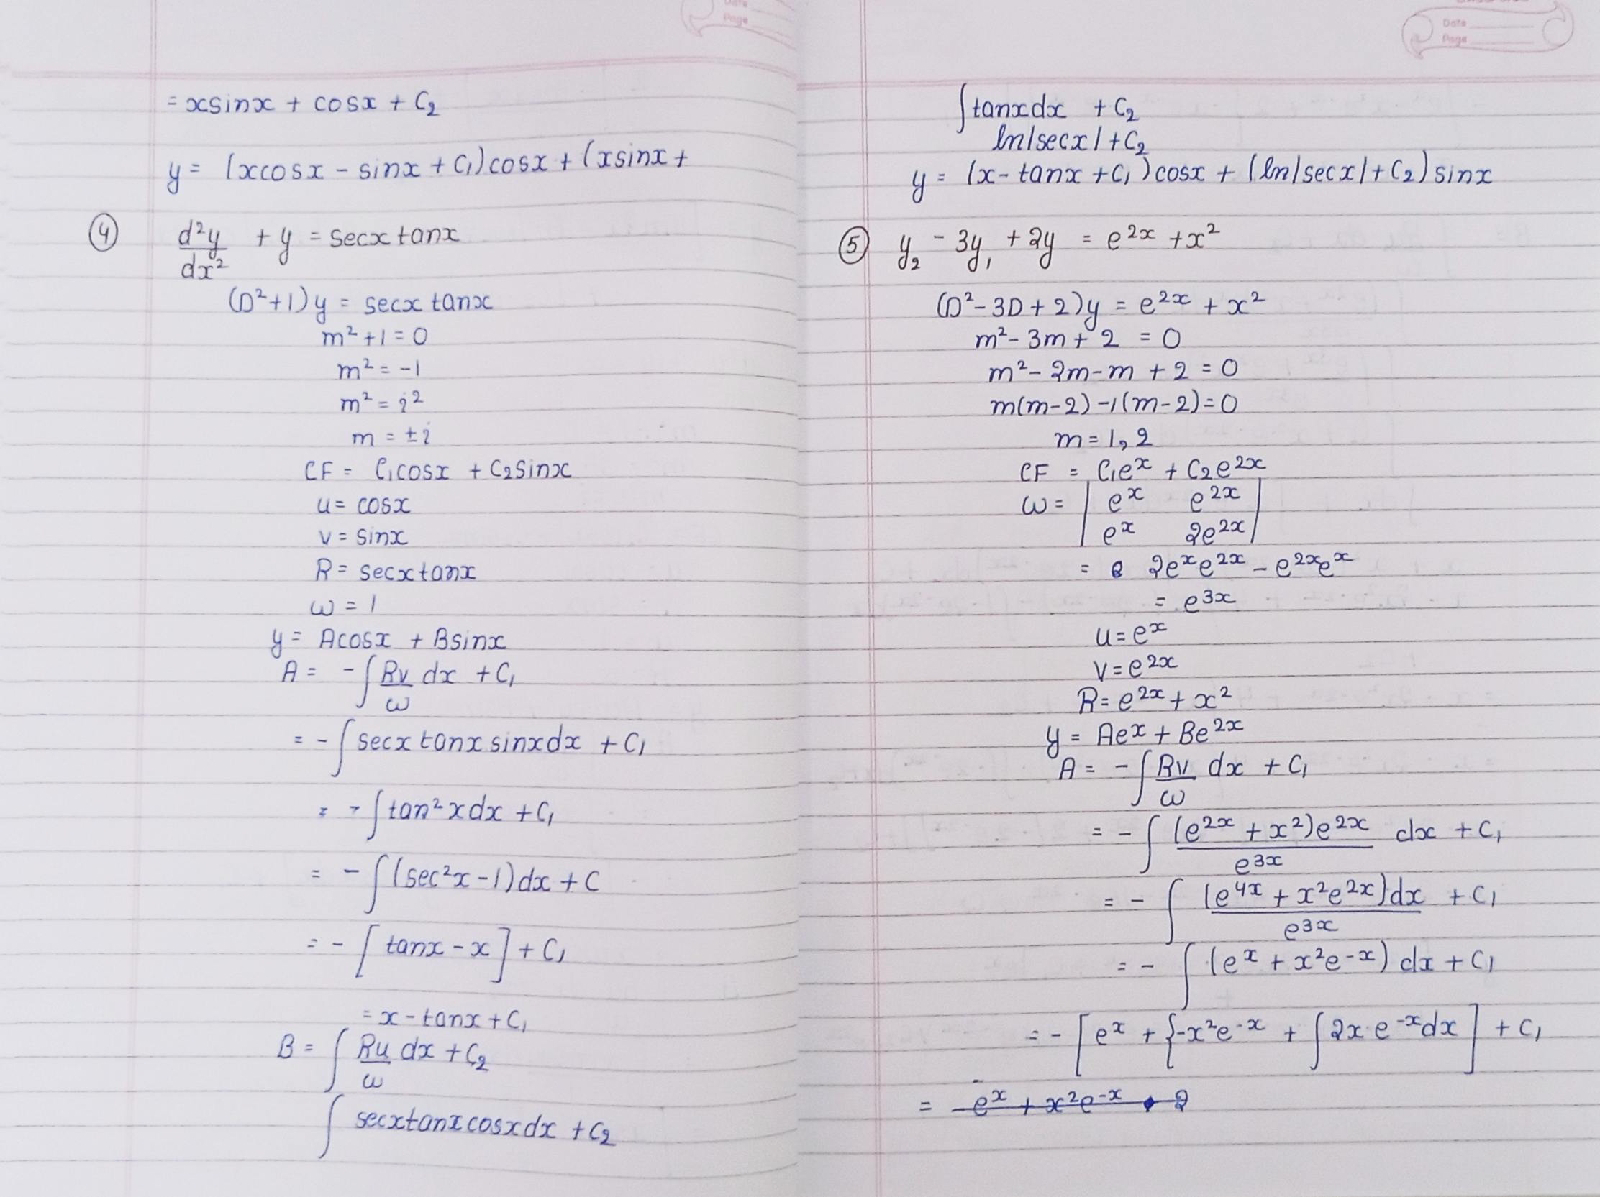 Date
Page
= xsinx + cosx + C₂
y = (xcosx - sinx + C₁)cosx + (xsinx +
④ d²y/dx² + y = secx tanx
(D²+1)y = secx tanx
m² + 1 = 0
m² = -1
m² = i²
m = ±i
CF = C₁cosx + C₂sinx
u = cosx
v = sinx
R = secx tanx
ω = 1
y = Acosx + Bsinx
A = -∫ Rv/ω dx + C₁
= -∫ secx tanx sinx dx + C₁
= -∫ tan²x dx + C₁
= -∫ (sec²x - 1)dx + C
= -[tanx - x] + C₁
= x - tanx + C₁
B = ∫ Ru/ω dx + C₂
∫ secx tanx cosx dx + C₂
Date
Page
∫ tanx dx + C₂
ln|secx| + C₂
y = (x - tanx + C₁)cosx + (ln|secx| + C₂)sinx
⑤ y₂ - 3y₁ + 2y = e^2x + x²
(D² - 3D + 2)y = e^2x + x²
m² - 3m + 2 = 0
m² - 2m - m + 2 = 0
m(m-2) -1(m-2) = 0
m = 1, 2
CF = C₁e^x + C₂e^2x
ω = | e^x e^2x |
| e^x 2e^2x |
= 2e^x e^2x - e^2x e^x
= e^3x
u = e^x
v = e^2x
R = e^2x + x²
y = Ae^x + Be^2x
A = -∫ Rv/ω dx + C₁
= -∫ (e^2x + x²)e^2x / e^3x dx + C₁
= -∫ (e^4x + x²e^2x)dx / e^3x + C₁
= -∫ (e^x + x²e^-x) dx + C₁
= -[e^x + {-x²e^-x + ∫ 2x·e^-x dx] + C₁
= -e^x + x²e^-x